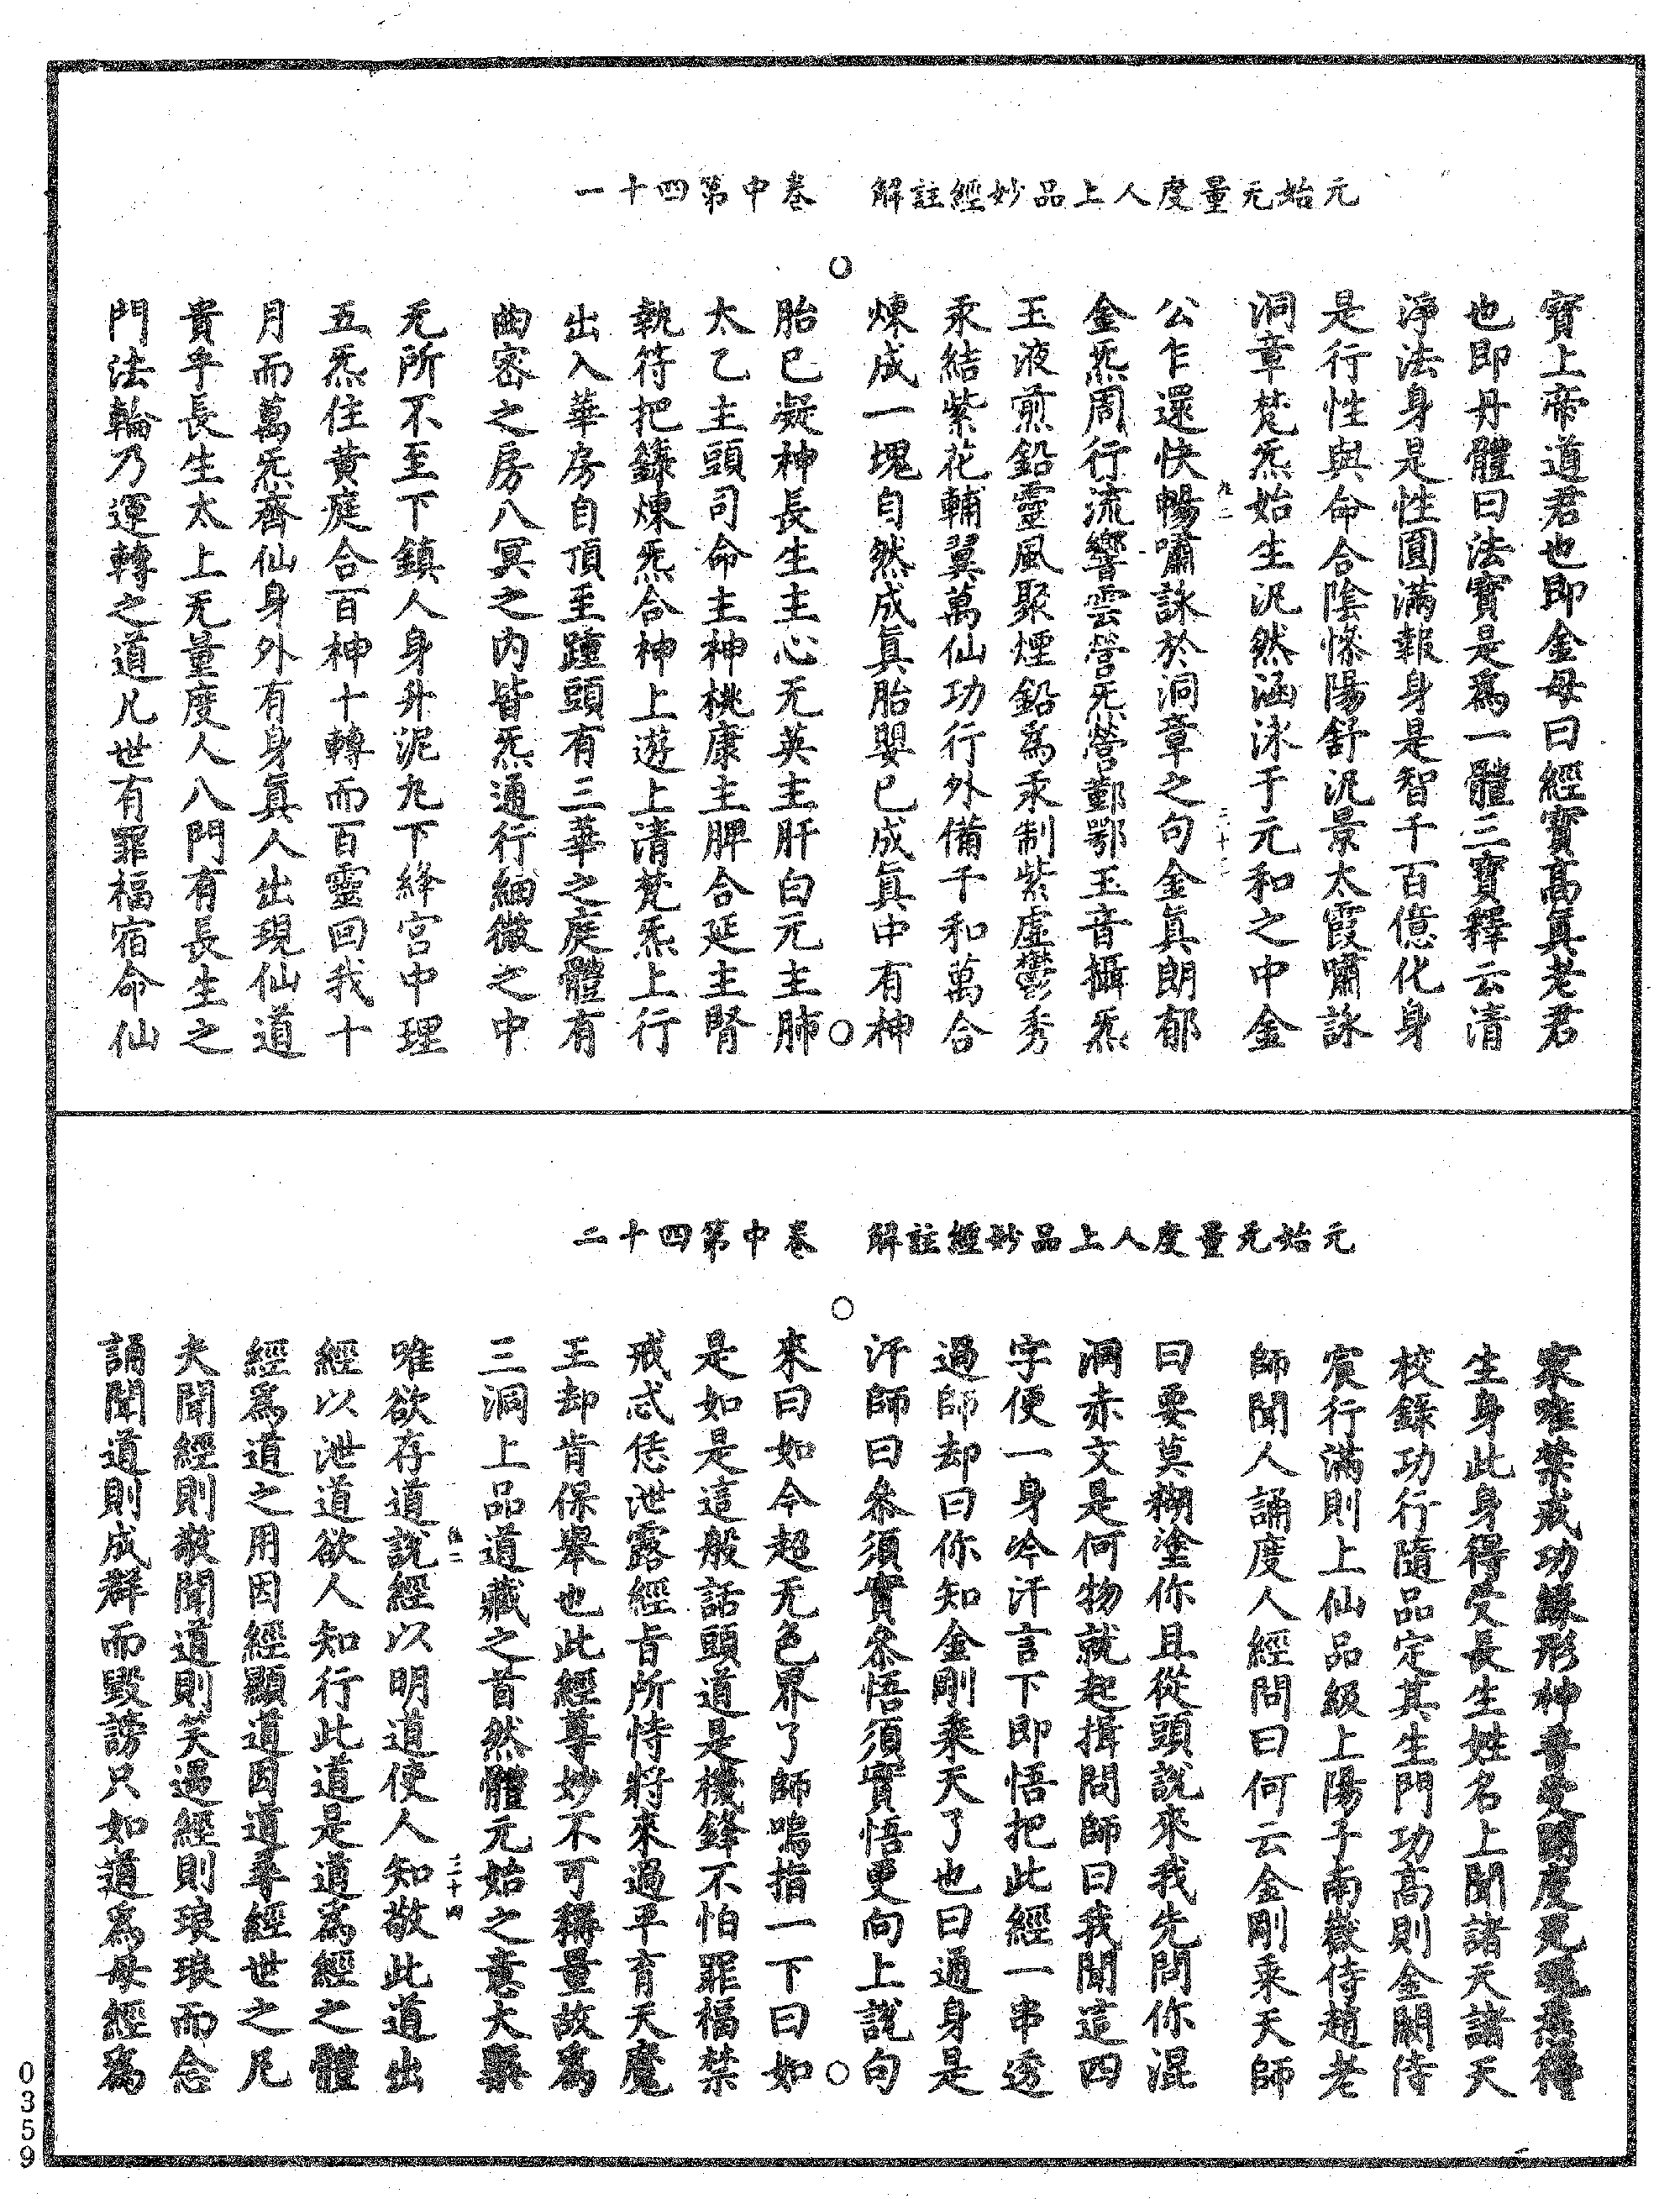 元始无量度人上品妙經註解　卷中第四十一
寶上帝道君也即金母曰經寶高真老君
也即丹體曰法寶是為一體三寶釋云清
淨法身是性圓滿報身是智千百億化身
是行性與命合陰慘陽舒汎景太霞嘯詠
洞章梵炁始生汎然涵泳于元和之中金
公乍還快暢嘯詠於洞章之句金真朗郁
金炁周行流響雲營炁營鄷鄂玉音攝炁
玉液煎鉛靈風聚煙鉛為汞制紫虛鬱秀
汞結紫花輔翼萬仙功行外備千和萬合
煉成一塊自然成真胎嬰已成真中有神
胎已凝神長生主心无英主肝白元主肺
太乙主頭司命主神桃康主脾合延主腎
執符把籙煉炁合神上遊上清梵炁上行
出入華房自頂至踵頭有三華之庭體有
曲密之房八冥之內皆炁通行細微之中
无所不至下鎮人身升泥丸下絳宮中理
五炁住黃庭合百神十轉而百靈回我十
月而萬炁齊仙身外有身真人出現仙道
貴乎長生太上无量度人八門有長生之
門法輪乃運轉之道凡世有罪福宿命仙
元始无量度人上品妙經註解　卷中第四十二
家唯禁戒功緣形神普受開度死魂受煉得
生身此身得受長生姓名上聞諸天諸天
校錄功行隨品定其生門功高則金闕侍
宸行滿則上仙品級上陽子南嶽侍趙老
師聞人誦度人經問曰何云金剛乘天師
曰要莫糊塗你且從頭說來我先問你混
洞赤文是何物就起揖問師曰我聞這四
字便一身吟汗言下即悟把此經一串透
過師却曰你知金剛乘天了也曰通身是
汗師曰叅須實叅悟須實悟更向上說句
來曰如今超无色界了師喝指一下曰如
是如是這般話頭道是機鋒不怕罪福禁
戒忒恁泄露經旨所恃將來過平育天魔
王却肯保舉也此經尊妙不可稱量故為
三洞上品道藏之首然體元始之意大槩
唯欲存道說經以明道使人知敬此道出
經以泄道欲人知行此道是道為經之體
經為道之用因經顯道因道尋經世之凡
夫聞經則敬聞道則笑過經則琅琅而念
誦聞道則成群而毀謗只如道為母經為
0359